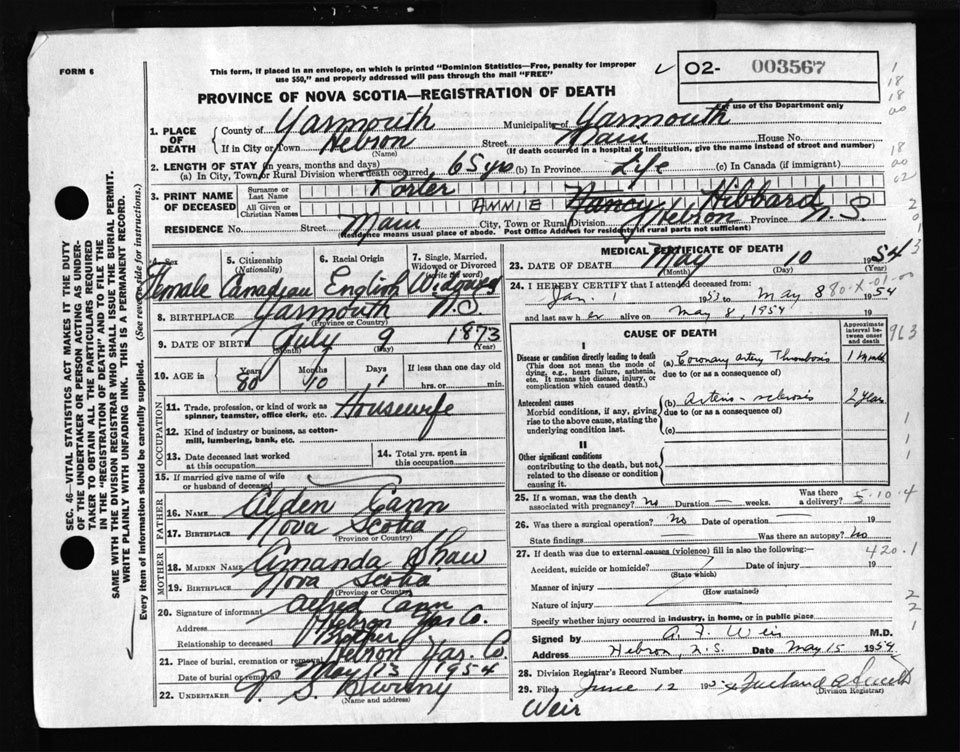 FORM 6
This form, if placed in an envelope, on which is printed "Dominion Statistics—Free, penalty for improper
use $50," and properly addressed will pass through the mail "FREE"
02- 003567
For use of the Department only
PROVINCE OF NOVA SCOTIA—REGISTRATION OF DEATH
1. PLACE OF DEATH
County of Yarmouth Municipality of Yarmouth
If in City or Town Hebron Street Main House No.
(Name) (If death occurred in a hospital or institution, give the name instead of street and number)
2. LENGTH OF STAY (in years, months and days)
(a) In City, Town or Rural Division where death occurred 65 yrs (b) In Province Life (c) In Canada (if immigrant)
3. PRINT NAME OF DECEASED
Surname or Last Name Porter
All Given or Christian Names ANNIE Nancy Hibbard
RESIDENCE No. Street Main City, Town or Rural Division Hebron Province N.S.
(Residence means usual place of abode. Post Office Address for residents in rural parts not sufficient)
4. Sex Female
5. Citizenship (Nationality) Canadian
6. Racial Origin English
7. Single, Married, Widowed or Divorced (write the word) Widowed
8. BIRTHPLACE Yarmouth N.S.
(Province or Country)
9. DATE OF BIRTH July 9 1873
(Month) (Day) (Year)
10. AGE in Years 80 Months 10 Days 1 If less than one day old hrs. or min.
OCCUPATION
11. Trade, profession, or kind of work as spinner, teamster, office clerk, etc. Housewife
12. Kind of industry or business, as cotton-mill, lumbering, bank, etc.
13. Date deceased last worked at this occupation
14. Total yrs. spent in this occupation
15. If married give name of wife or husband of deceased
FATHER
16. NAME Alden Cann
17. BIRTHPLACE Nova Scotia
(Province or Country)
MOTHER
18. MAIDEN NAME Amanda Shaw
19. BIRTHPLACE Nova Scotia
(Province or Country)
20. Signature of informant Alfred Cann
Address Hebron Yar. Co.
Relationship to deceased Brother
21. Place of burial, cremation or removal Hebron Yar. Co.
Date of burial or removal May 13 1954
22. UNDERTAKER S. Sweeny
(Name and address)
MEDICAL CERTIFICATE OF DEATH
23. DATE OF DEATH May 10 1954
(Month) (Day) (Year)
24. I HEREBY CERTIFY that I attended deceased from:
Jan. 1 1953 to May 8 1954
and last saw h er alive on May 8, 1954 19
CAUSE OF DEATH
Approximate interval between onset and death
I
Disease or condition directly leading to death
(This does not mean the mode of dying, e.g., heart failure, asthenia, etc. It means the disease, injury, or complication which caused death.)
(a) Coronary artery Thrombosis
due to (or as a consequence of)
Antecedent causes
Morbid conditions, if any, giving rise to the above cause, stating the underlying condition last.
(b) Arterio-sclerosis 2 years
due to (or as a consequence of)
(c)
II
Other significant conditions
contributing to the death, but not related to the disease or condition causing it.
25. If a woman, was the death associated with pregnancy? No Duration — weeks. Was there a delivery? 5-10-4
26. Was there a surgical operation? No Date of operation — 19
State findings Was there an autopsy? No
27. If death was due to external causes (violence) fill in also the following:— 420.1
Accident, suicide or homicide? Date of injury 19
(State which)
Manner of injury
(How sustained)
Nature of injury
Specify whether injury occurred in industry, in home, or in public place
Signed by A. F. Weir M.D.
Address Hebron, N.S. Date May 15 1954
28. Division Registrar's Record Number
29. Filed June 12
(Division Registrar)
Weir
SEC. 46—VITAL STATISTICS ACT MAKES IT THE DUTY
OF THE UNDERTAKER OR PERSON ACTING AS UNDER-
TAKER TO OBTAIN ALL THE PARTICULARS REQUIRED
IN THE "REGISTRATION OF DEATH" AND TO FILE THE
SAME WITH THE DIVISION REGISTRAR WHO SHALL ISSUE THE BURIAL PERMIT.
WRITE PLAINLY WITH UNFADING INK. THIS IS A PERMANENT RECORD.
Every item of information should be carefully supplied. (See reverse side for instructions.)